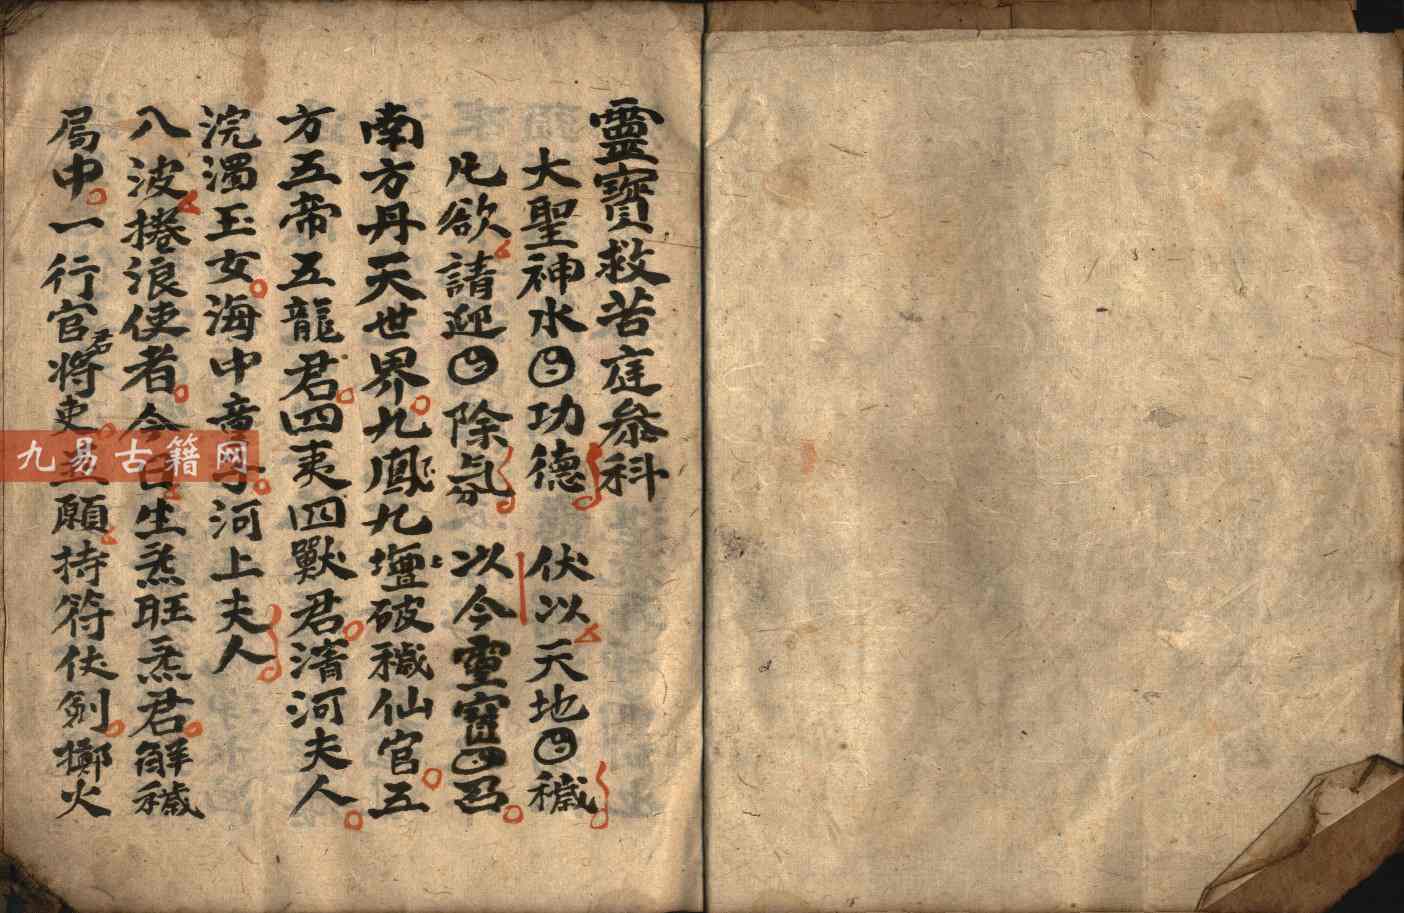 靈寶救苦庭叅科
大聖神水功德 伏以天地穢
凢欲請迎除氛 以今靈寶四召
南方丹天世界九鳳九壇破穢仙官五
方五帝五龍君四夷四獸君濱河夫人
浣濁玉女海中童子河上夫人
八波捲浪使者今日生炁旺炁君解穢
局中一行官將君吏並願持符伏劍擲火
九易古籍网